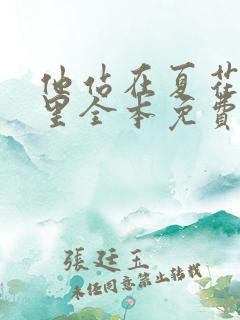 他站在夏花
里全本免費
張廷玉
未经同意禁止转载